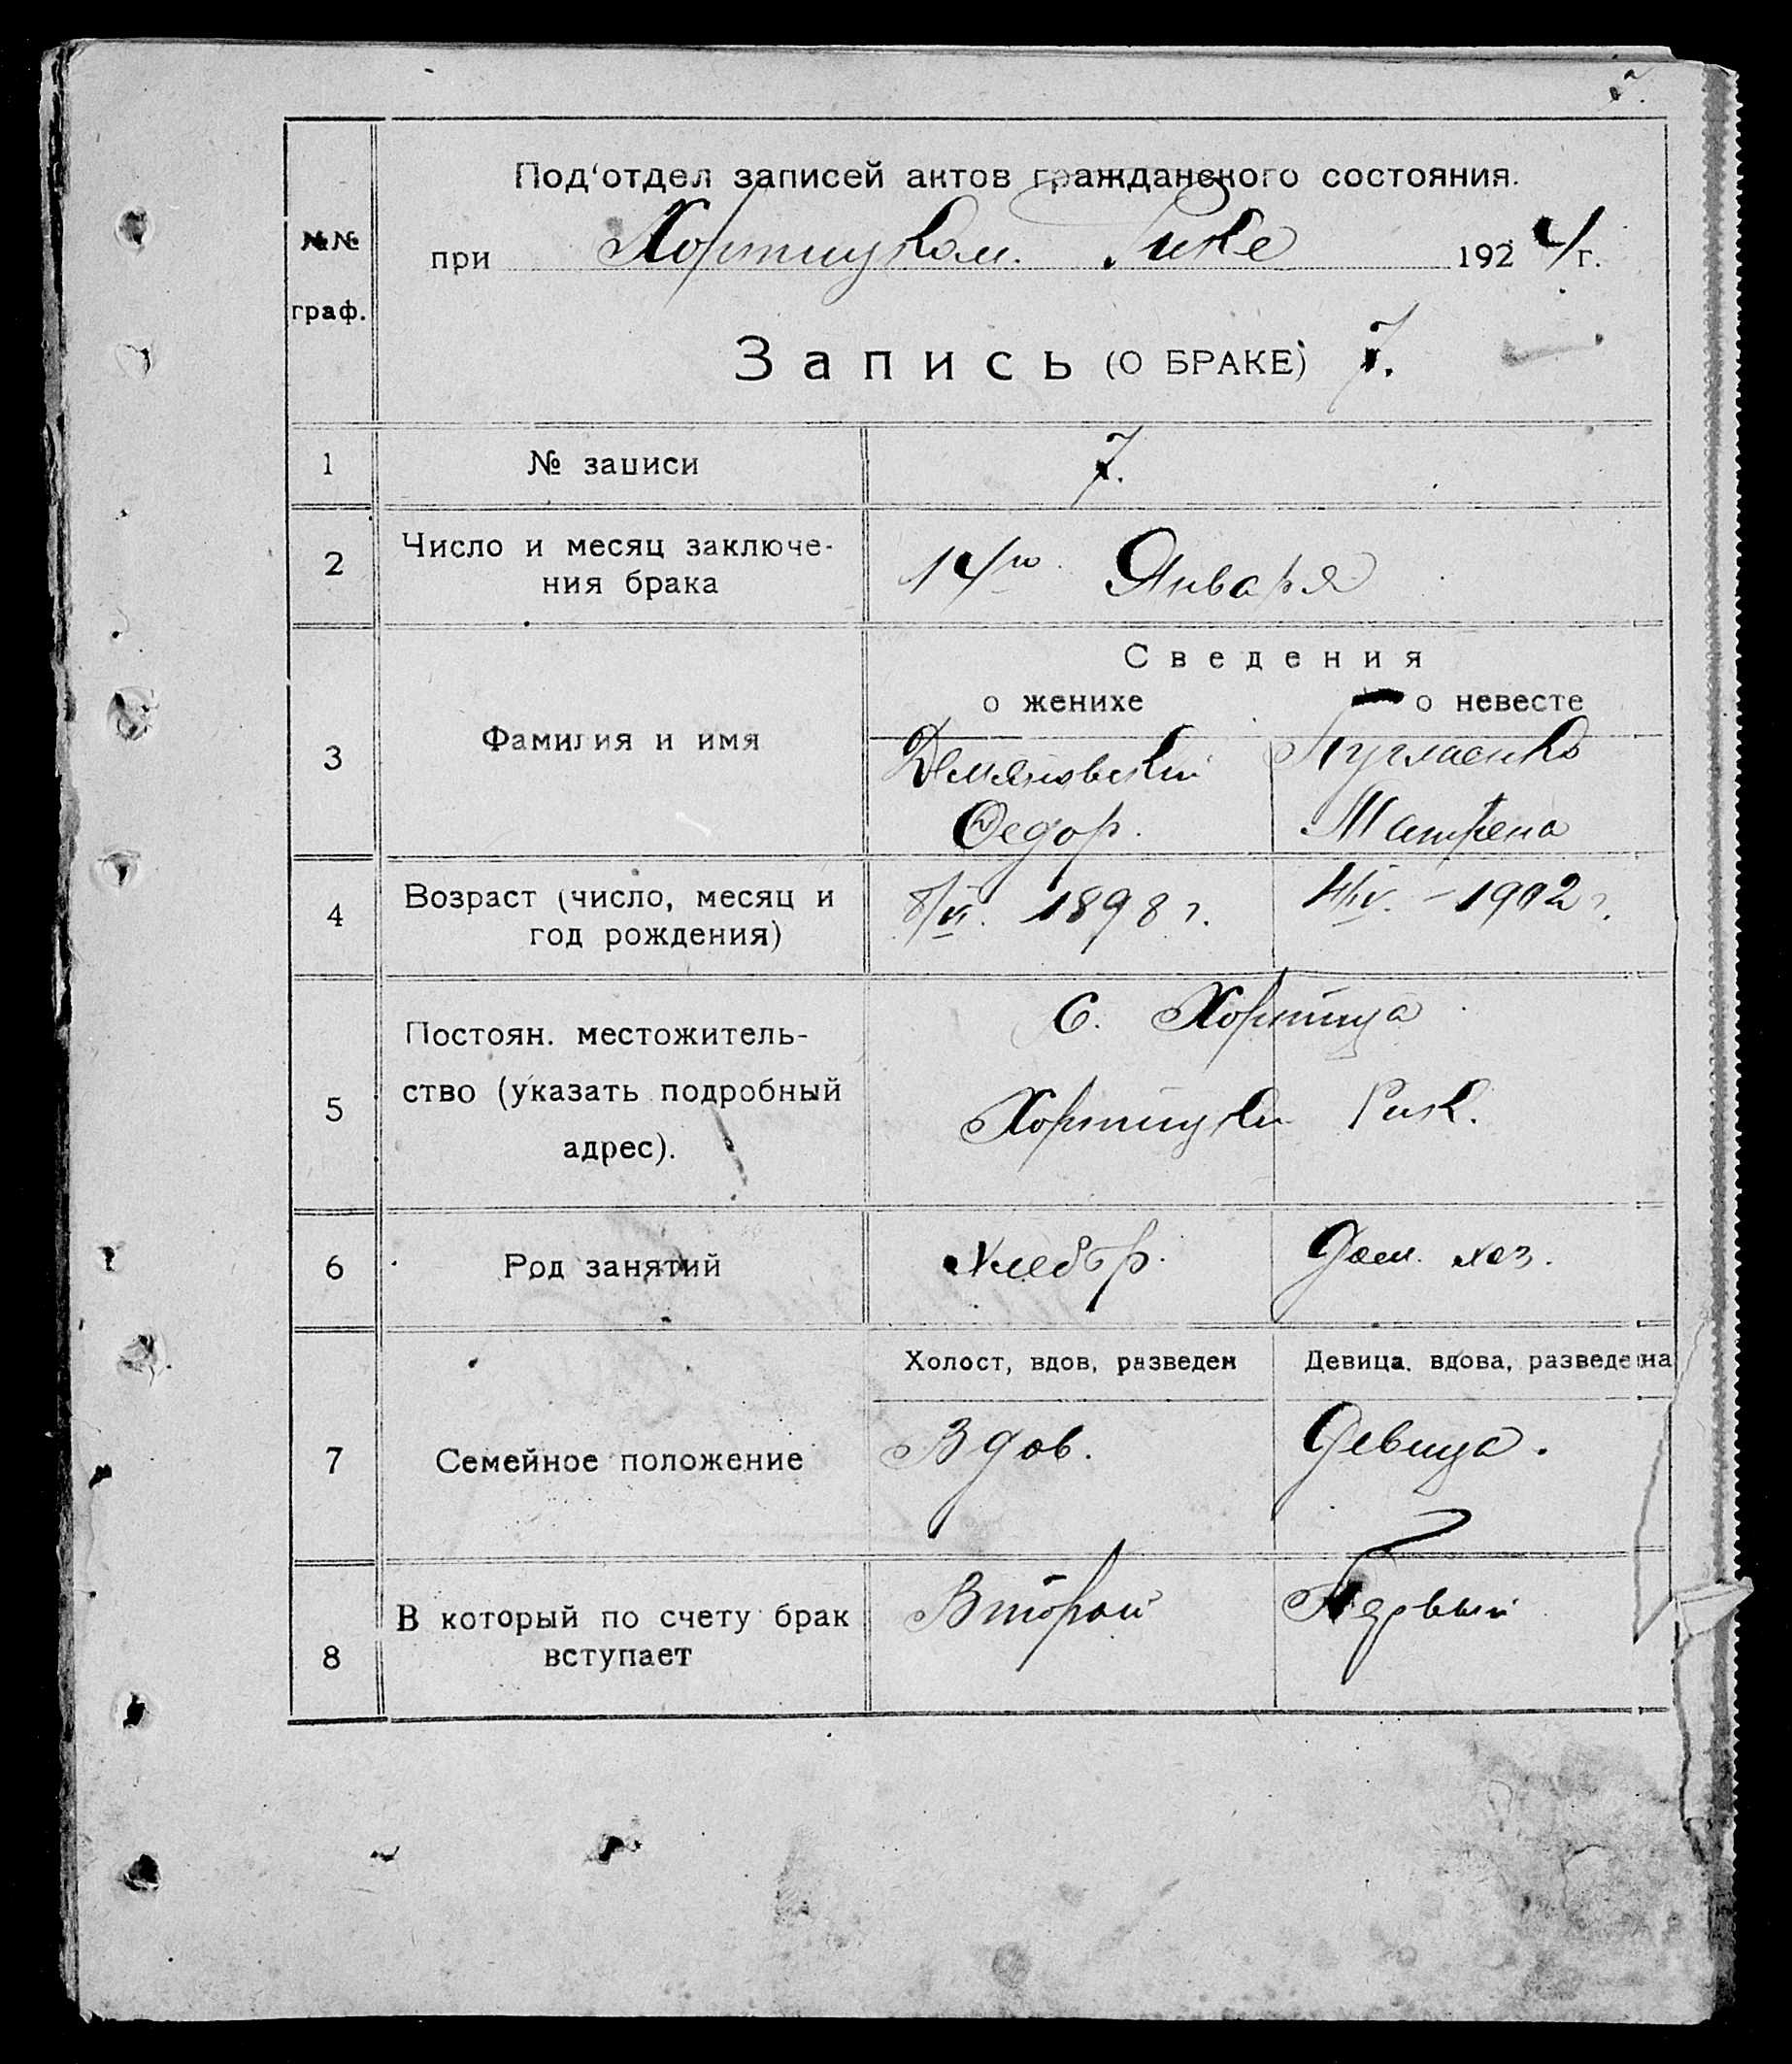 7.
№№
граф.
Под‘отдел записей актов гражданского состояния.
при Хортицком Рике 1924 г.
Запись (О БРАКЕ) 7.
1 № записи 7.
2 Число и месяц заключе-
ния брака 14го Января
Сведения
о женихе о невесте
3 Фамилия и имя Демяновский
Федор. Матрена
4 Возраст (число, месяц и
год рождения) 8/VI. 1898 г. 4/IV. – 1902 г.
5 Постоян. местожитель-
ство (указать подробный
адрес).
С. Хортица
Хортицкий Рик.
6 Род занятий Хлебор. Дом. хоз.
Холост, вдов, разведен Девица, вдова, разведена
7 Семейное положение Вдов. Девица.
8 В который по счету брак
вступает Второй Первый